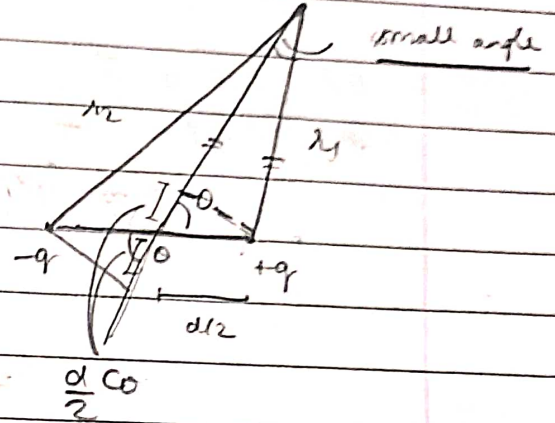 small angle
r2
r1
θ
-q
θ
+q
d/2
d/2 Cθ